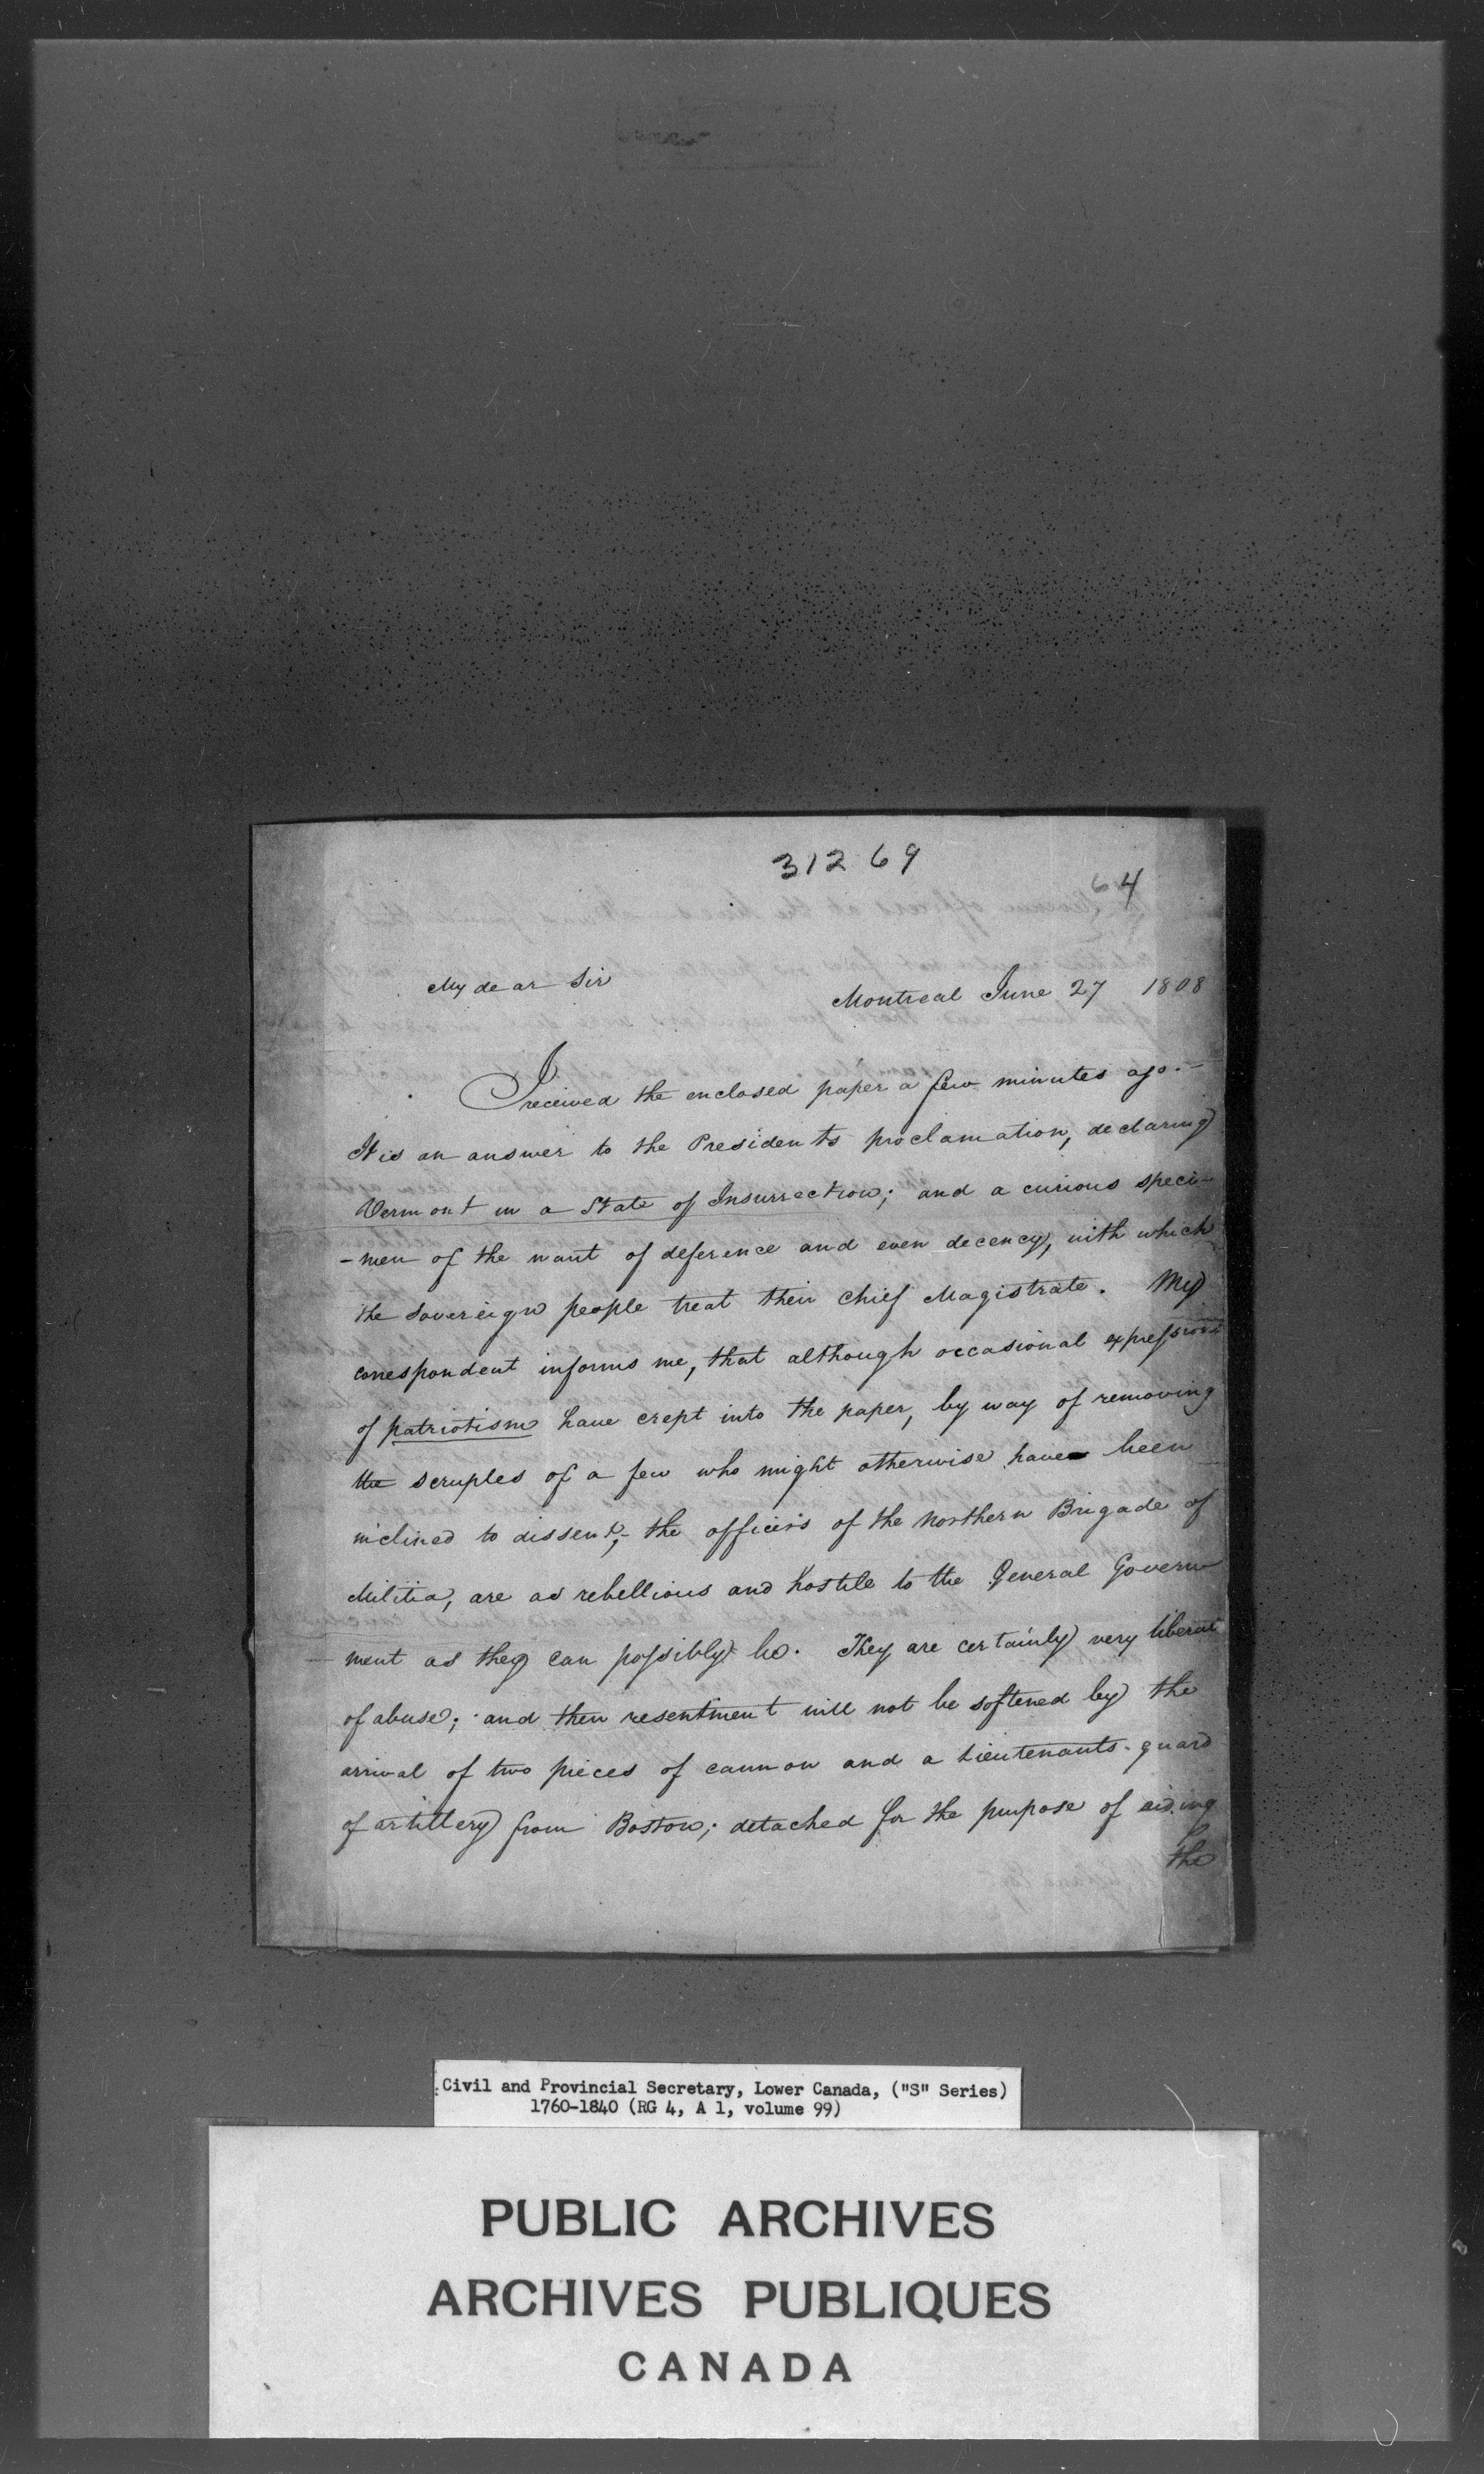 31269
64
My dear Sir
Montreal June 27 1808
I received the enclosed paper a few minutes ago.—
It is an answer to the Presidents proclamation, declaring
Vermont in a State of Insurrection; and a curious speci-
-men of the want of deference and even decency, with which
the Sovereign people treat their Chief Magistrate. My
correspondent informs me, that although occasional expressions
of patriotism have crept into the paper, by way of removing
the scruples of a few who might otherwise have been
inclined to dissent;- the officers of the Northern Brigade of
Militia, are as rebellious and hostile to the General Govern
ment as they can possibly be. They are certainly very liberal
of abuse; and their resentment will not be softened by the
arrival of two pieces of cannon and a Lieutenants-guard
of artillery from Boston; detached for the purpose of aiding
the
Civil and Provincial Secretary, Lower Canada, ("S" Series)
1760-1840 (RG 4, A 1, volume 99)
PUBLIC ARCHIVES
ARCHIVES PUBLIQUES
CANADA